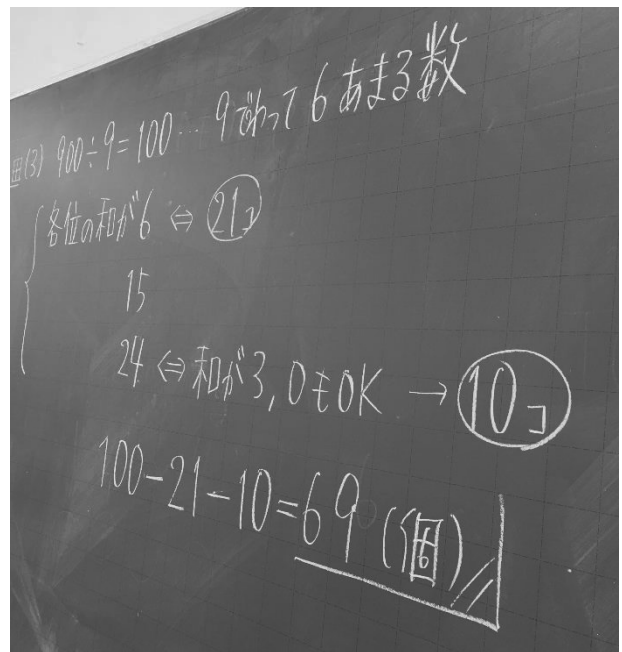 (3) 900÷9=100… 9でわって6あまる数
各位の和が6 ⇔ 21コ
15
24 ⇔ 和が3, 0もOK → 10コ
100-21-10=69(個)